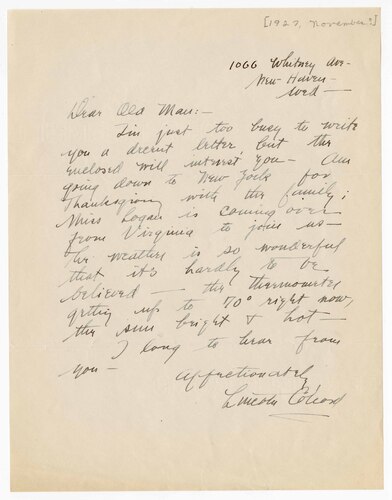 [1927, November?]
1066 Whitney Ave-
New Haven
Wed—
Dear Old Man:-
I'm just too busy to write
you a decent letter, but the
enclosed will interest you— Am
going down to New York for
Thanksgiving with the family;
Miss Logan is coming over
from Virginia to join us—
The weather is so wonderful
that it's hardly to be
believed— the thermometer
getting up to 70° right now,
the sun bright & hot—
I long to hear from
you—
Affectionately
Lincoln Colcord